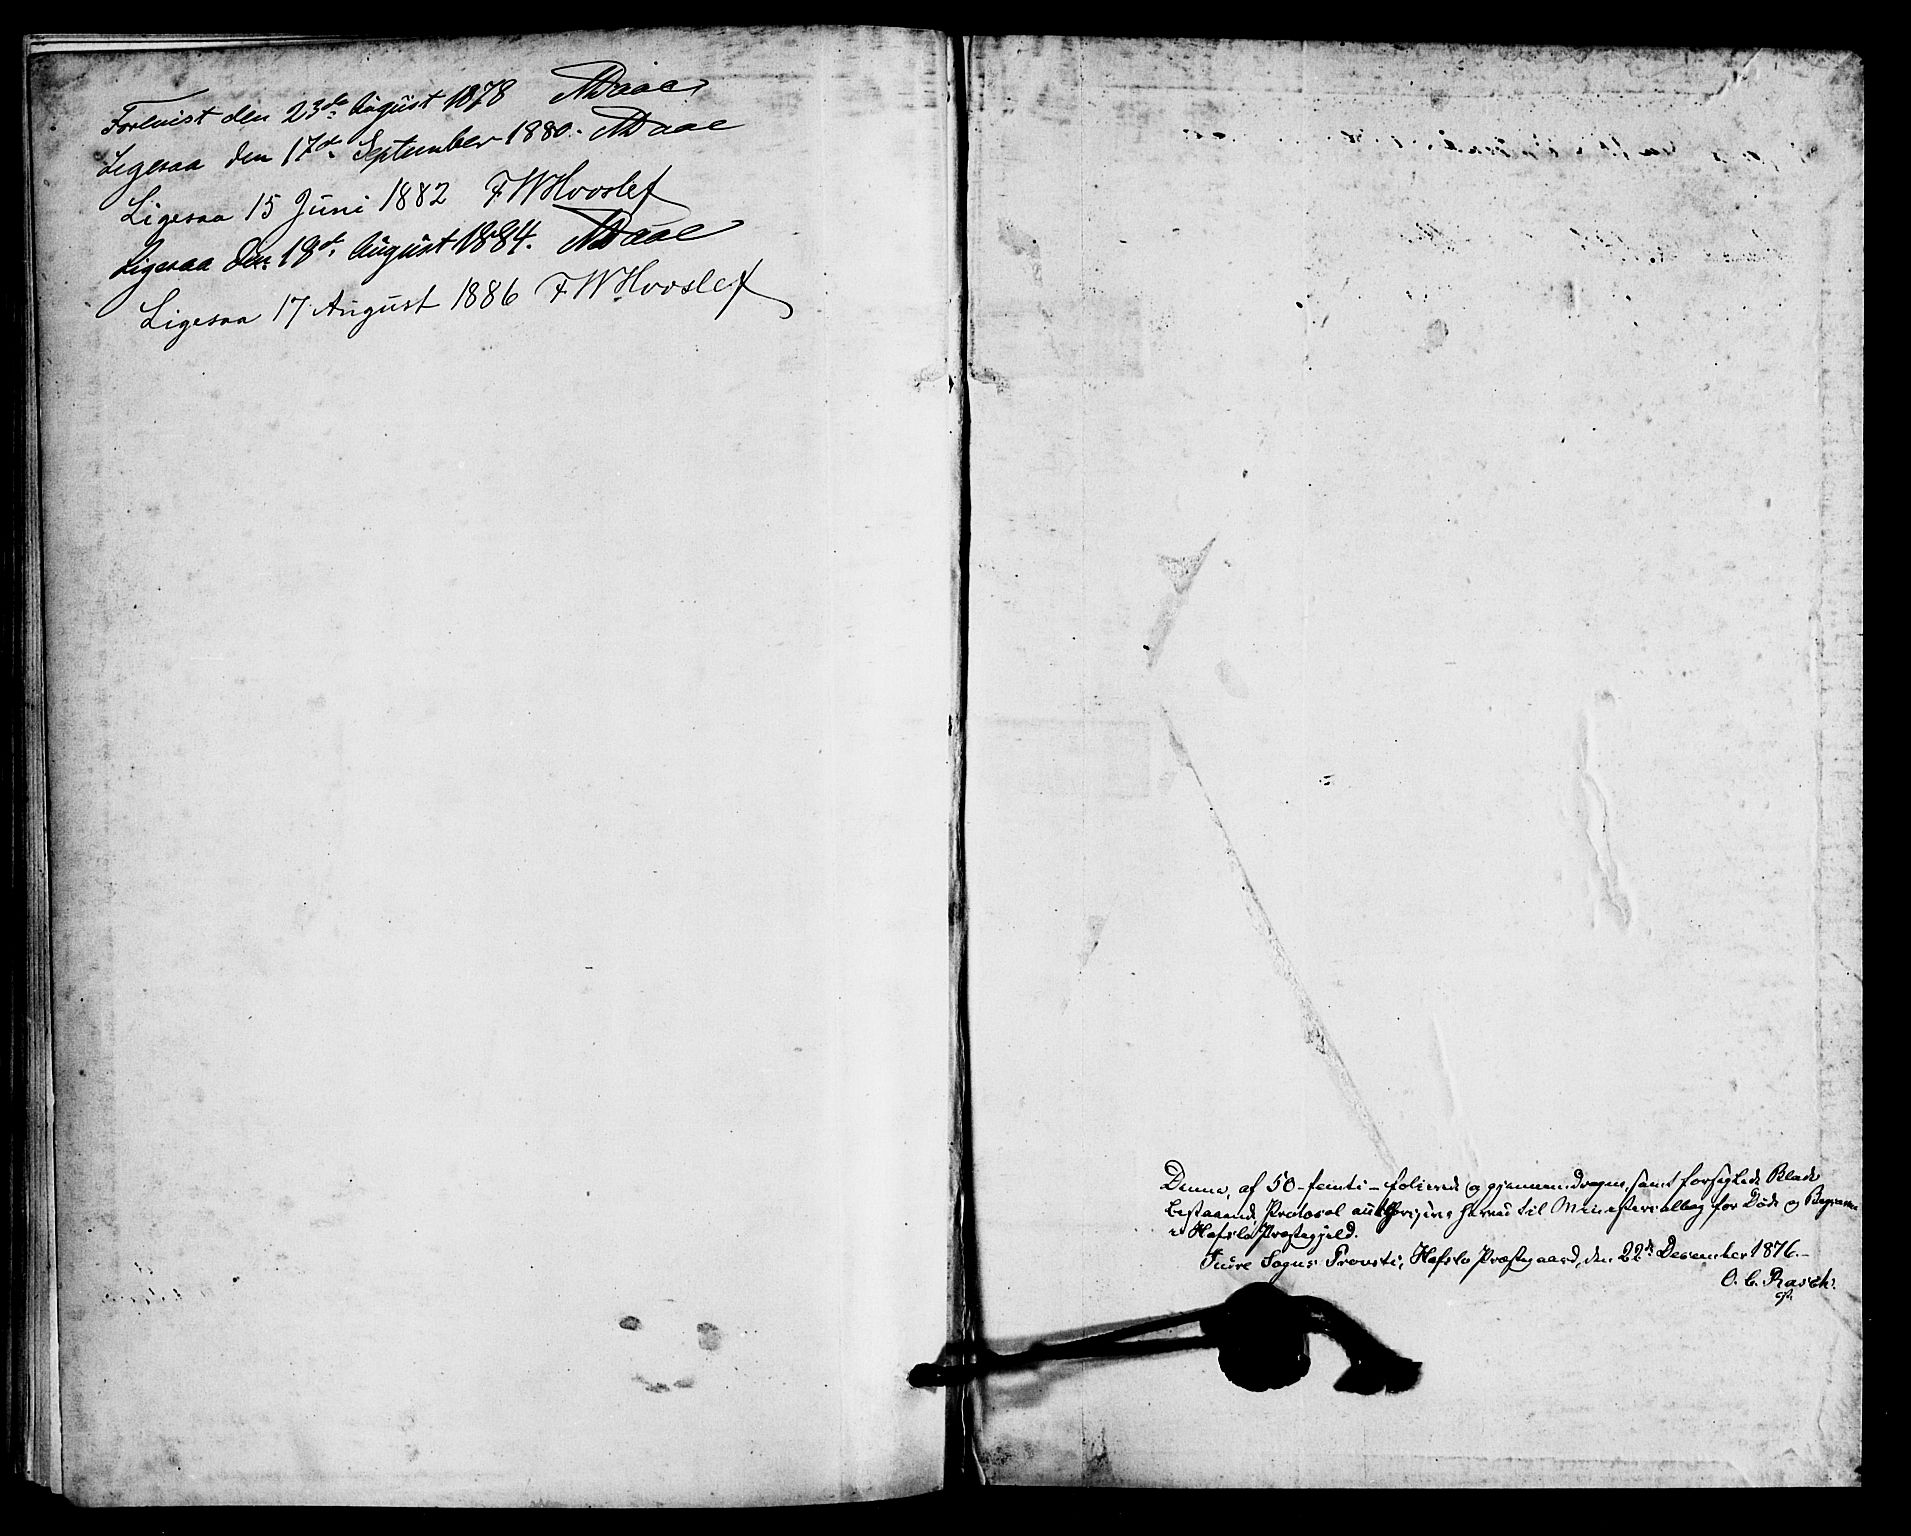 Forevist den 23de August 1878 ADaae
Ligesaa den 17de September 1880. ADaae
Ligesaa 15 Juni 1882 F W Hvoslef
Ligesaa den 19de August 1884. ADaae
Ligesaa 17 August 1886 F W Hvoslef
Denne, af 50 - femti - folierede og gjennemdragne, samt forseglede Blade
bestaaende Protocol authoriseres herved til Ministerialbog for Døde og Begravne
i Hafslo Præstegjeld.
Indre Sogns Provsti, Hafslo Præstegaard, den 22de December 1876.-
O. C. Rasch.